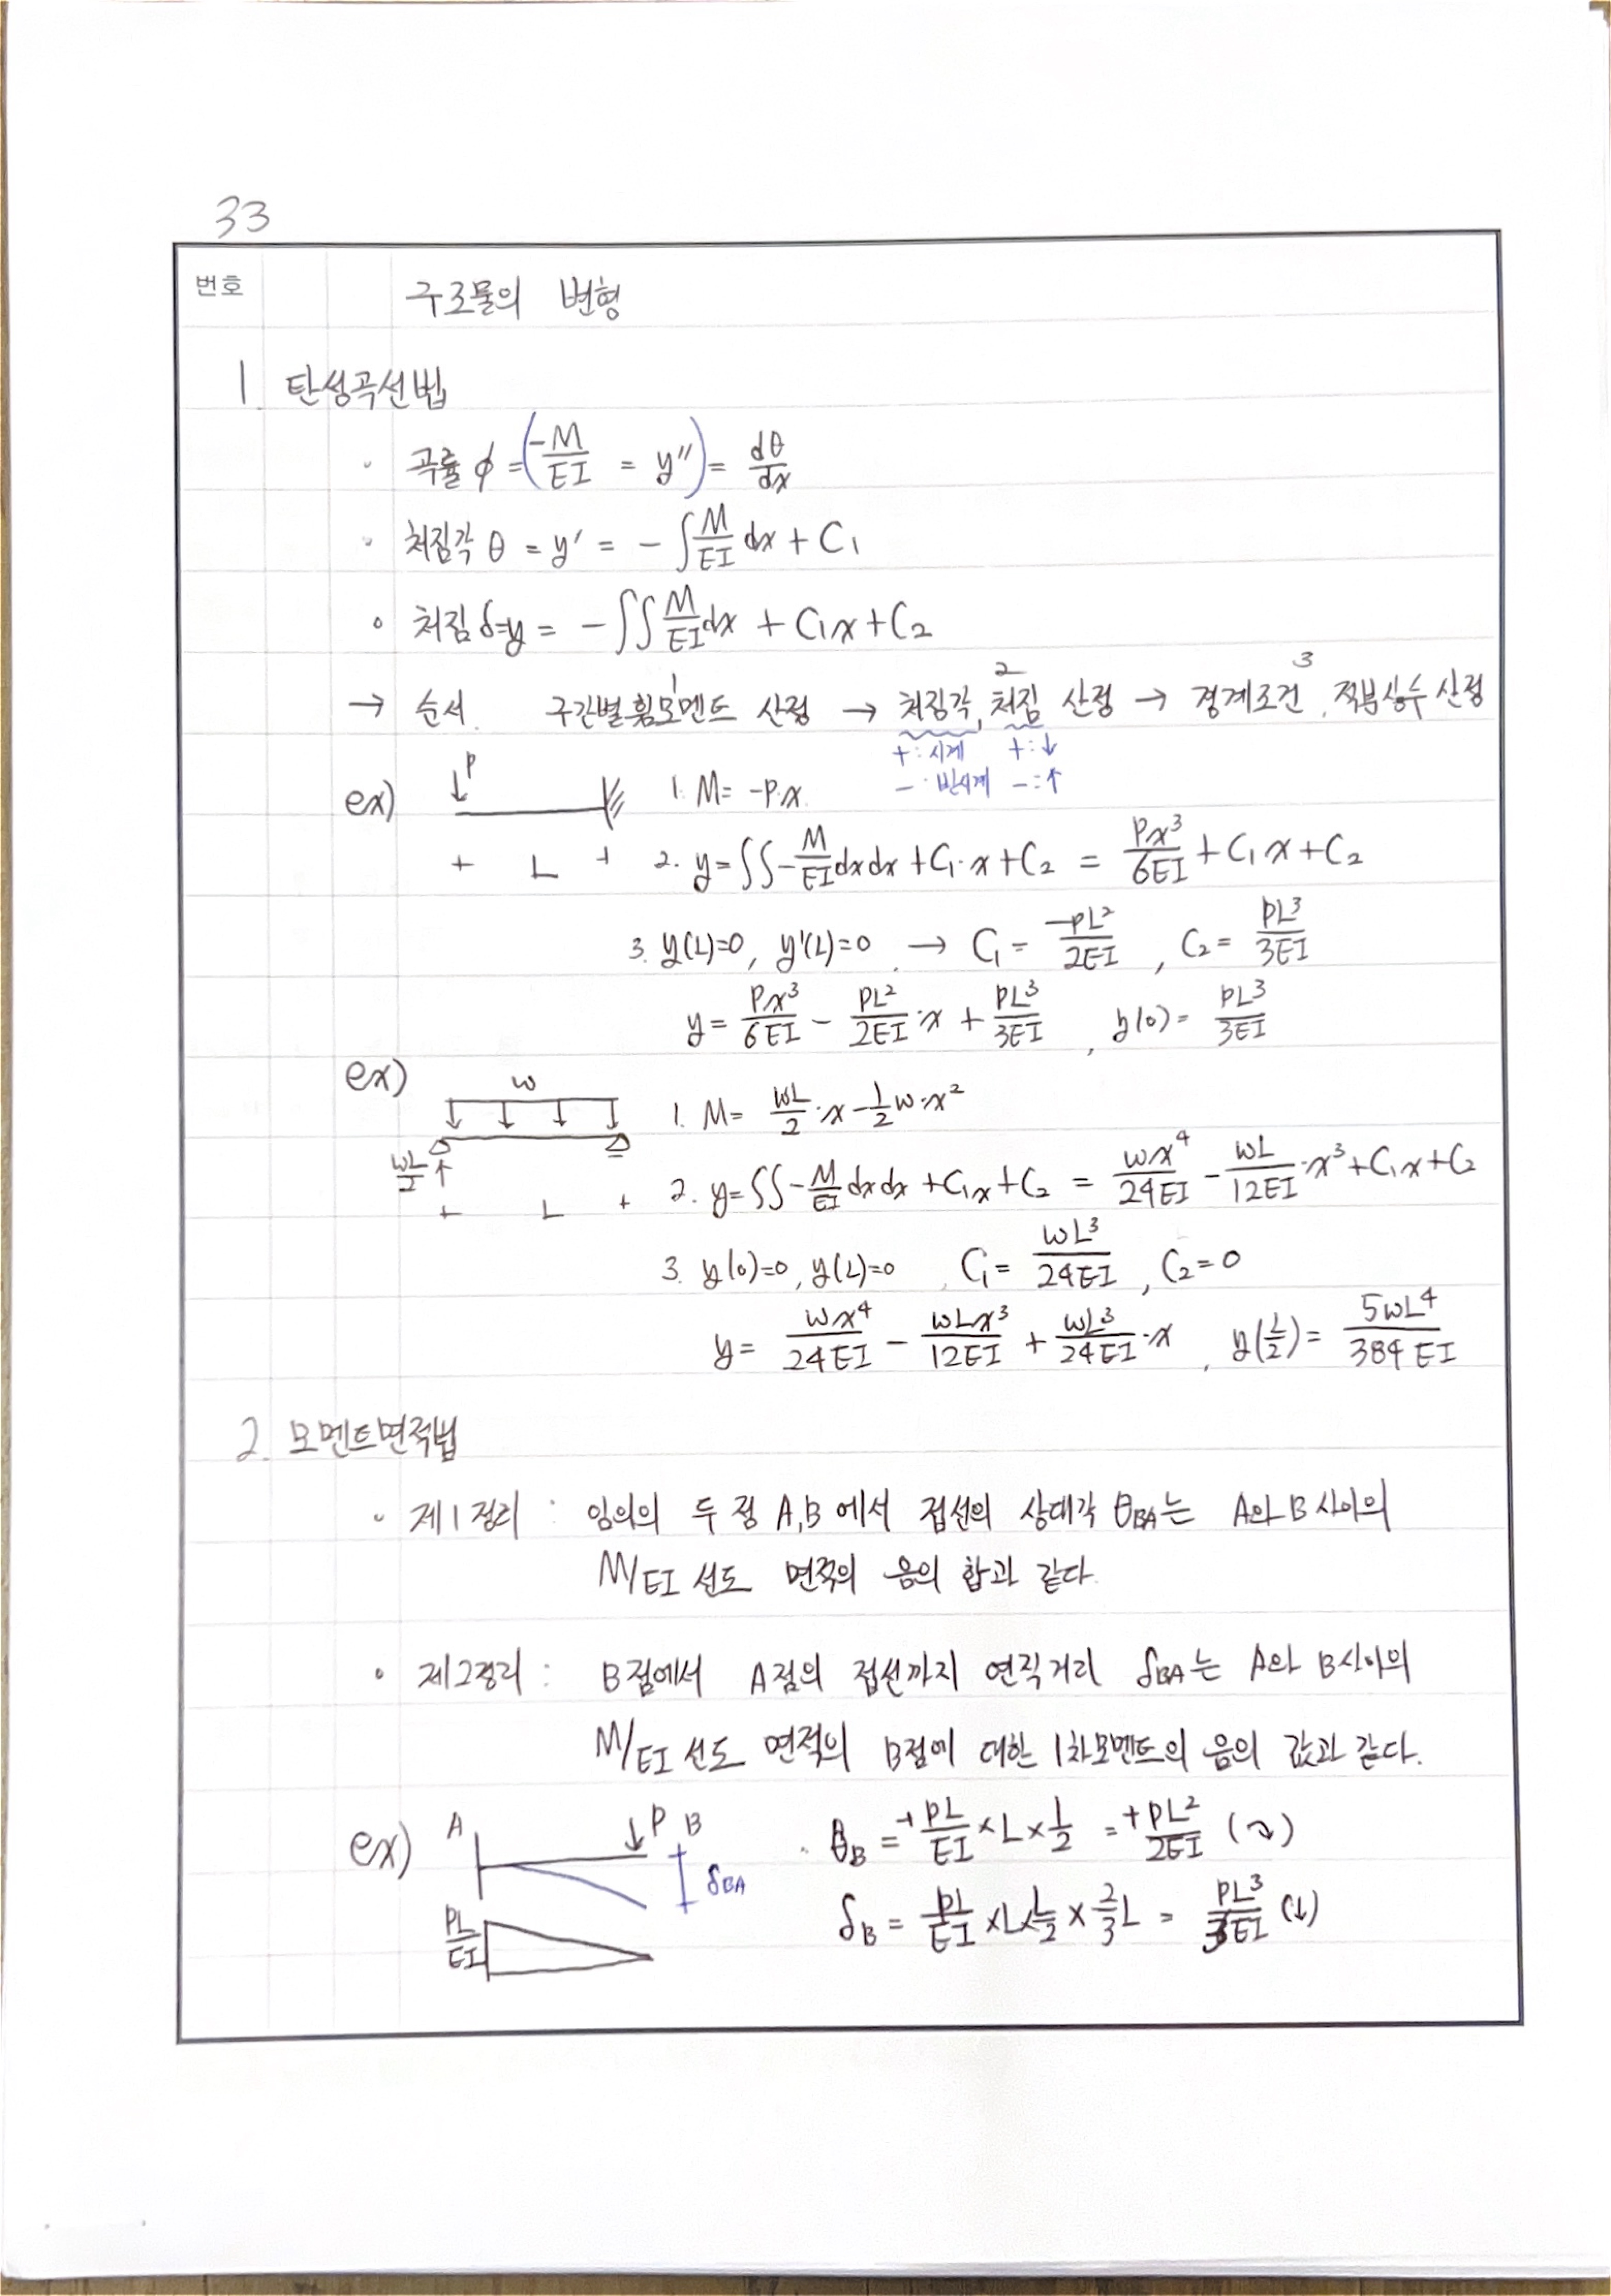 33
번호
구조물의 변형
1. 탄성곡선법
· 곡률 ϕ = (-M/EI = y″) = dθ/dx
· 처짐각 θ = y′ = - ∫ M/EI dx + C₁
∘ 처짐 δ=y = - ∫∫ M/EI dx + C₁x + C₂
→ 순서. 구간별 휨모멘트 산정 → 처짐각, 처짐 산정 → 경계조건, 적분상수 산정
1 2 3
+: 시계 +: ↓
-: 반시계 -: ↑
ex) P 1. M = -P·x
L 2. y = ∫∫ - M/EI dxdx + C₁·x + C₂ = Px³/6EI + C₁x + C₂
3. y(L)=0, y′(L)=0 → C₁ = -PL²/2EI, C₂ = PL³/3EI
y = Px³/6EI - PL²/2EI·x + PL³/3EI, y(0) = PL³/3EI
ex) w 1. M = wL/2·x - 1/2 w·x²
wL/2 ↑ L 2. y = ∫∫ - M/EI dxdx + C₁x + C₂ = wx⁴/24EI - wL/12EI·x³ + C₁x + C₂
3. y(0)=0, y(L)=0, C₁ = wL³/24EI, C₂ = 0
y = wx⁴/24EI - wLx³/12EI + wL³/24EI·x, y(L/2) = 5wL⁴/384EI
2. 모멘트면적법
· 제1정리 : 임의의 두 점 A,B에서 접선의 상대각 θBA는 A와 B사이의
M/EI 선도 면적의 음의 합과 같다.
∘ 제2정리 : B점에서 A점의 접선까지 연직거리 δBA는 A와 B사이의
M/EI 선도 면적의 B점에 대한 1차모멘트의 음의 값과 같다.
ex) A P B δBA · θB = +PL/EI × L × 1/2 = +PL²/2EI (↷)
PL/EI δB = PL/EI × L × 1/2 × 2/3 L = PL³/3EI (↓)